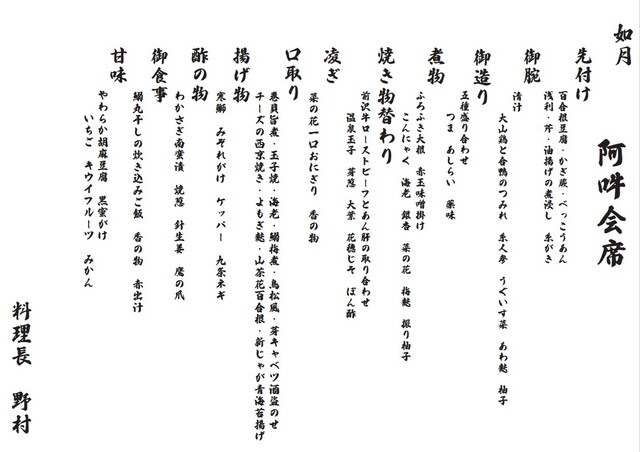 如月
阿吽会席
先付け
百合根豆腐・かぎ蕨・べっこうあん
浅利・芹・油揚げの煮浸し 糸がき
御腕
清汁
大山鶏と合鴨のつみれ 糸人参 うぐいす菜 あわ麩 柚子
御造り
五種盛り合わせ
つま あしらい 薬味
煮物
ふろふき大根 赤玉味噌掛け
こんにゃく 海老 銀杏 菜の花 梅麩 振り柚子
焼き物替わり
前沢牛ローストビーフとあん肝の取り合わせ
温泉玉子 芽葱 大葉 花穂じそ ぽん酢
凌ぎ
菜の花一口おにぎり 香の物
口取り
巻貝旨煮・玉子焼・海老・鰯梅煮・鳥松風・芽キャベツ酒盗のせ
チーズの西京焼き・よもぎ麩・山茶花百合根・新じゃが青海苔揚げ
揚げ物
寒鰤 みぞれがけ ケッパー 九条ネギ
酢の物
わかさぎ南蛮漬 焼葱 針生姜 鷹の爪
御食事
鰯丸干しの炊き込みご飯 香の物 赤出汁
甘味
やわらか胡麻豆腐 黒蜜がけ
いちご キウイフルーツ みかん
料理長 野村